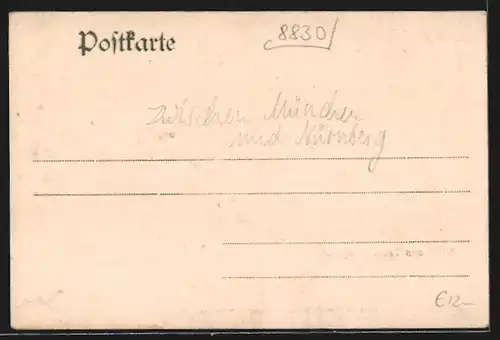 Postkarte
8830
zwischen München
und Nürnberg
€12-